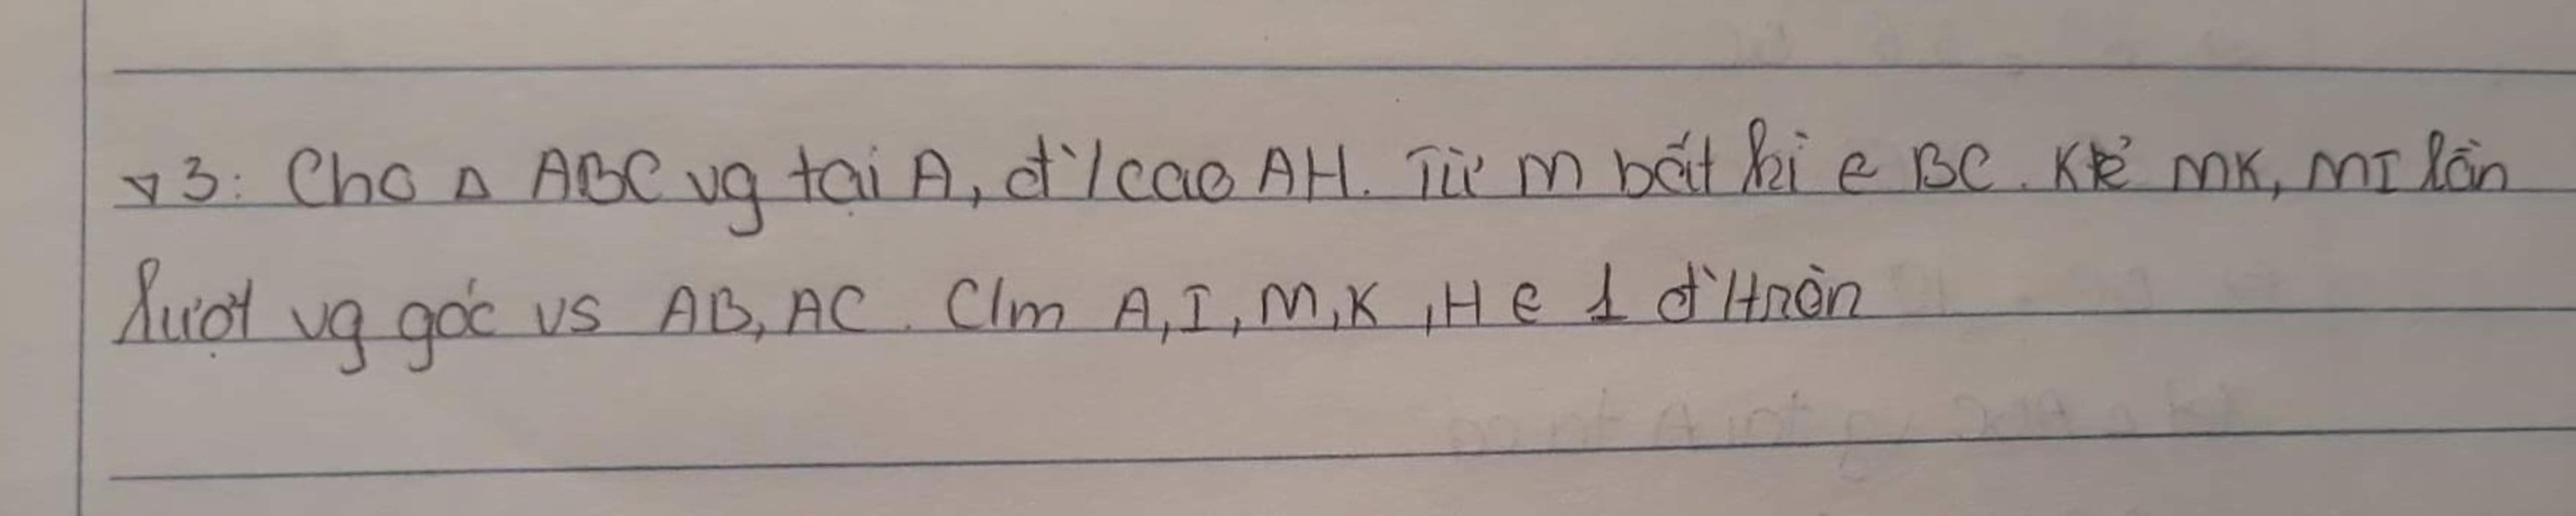 v3: Cho Δ ABC vg tại A, đ'/cao AH. Từ M bất kì ∈ BC. Kẻ MK, MI lần
lượt vg góc vs AB, AC. C/m A, I, M, K, H ∈ 1 đ'tròn